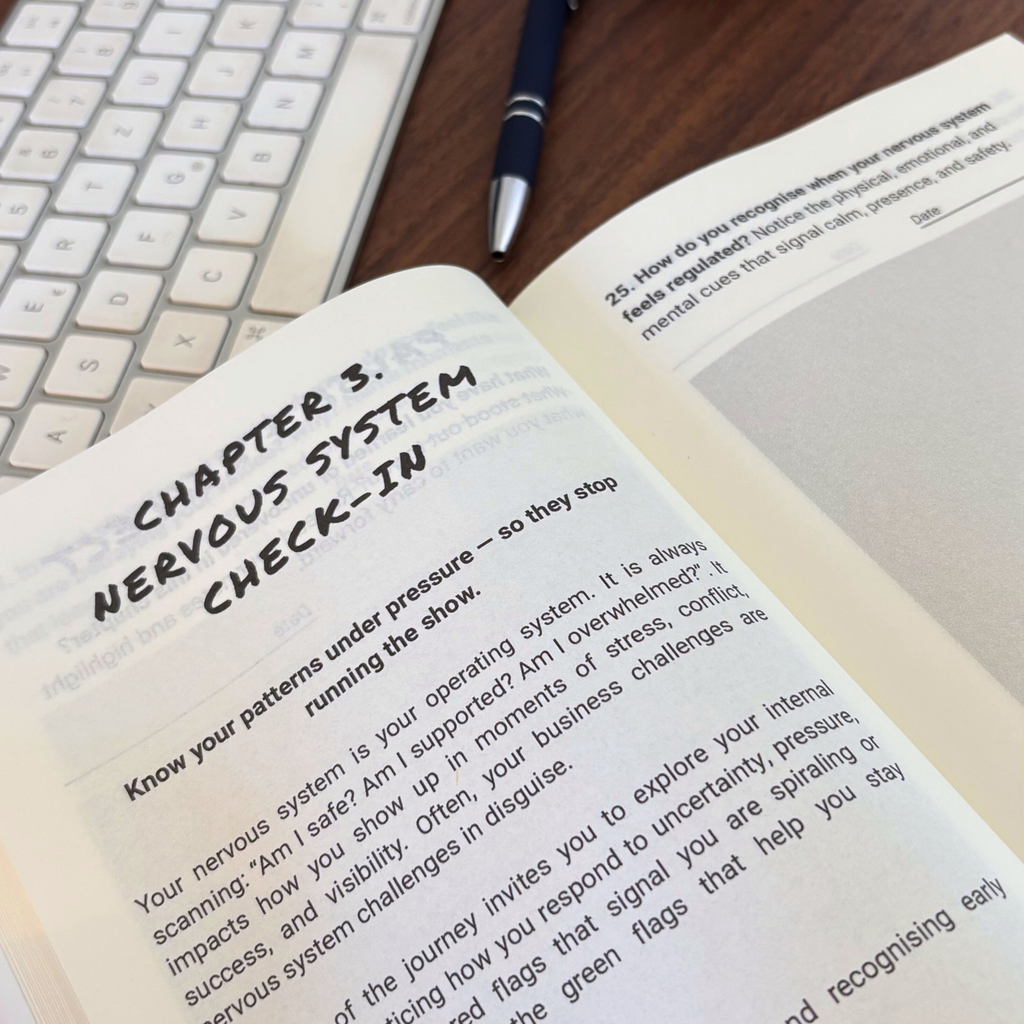 CHAPTER 3.
NERVOUS SYSTEM
CHECK-IN
Know your patterns under pressure — so they stop
running the show.
Your nervous system is your operating system. It is always
scanning: "Am I safe? Am I supported? Am I overwhelmed?". It
impacts how you show up in moments of stress, conflict,
success, and visibility. Often, your business challenges are
nervous system challenges in disguise.
of the journey invites you to explore your internal
how you respond to uncertainty, pressure,
flags that signal you are spiraling or
the green flags that help you stay
recognising early
25. How do you recognise when your nervous system
feels regulated? Notice the physical, emotional, and
mental cues that signal calm, presence, and safety.
Date:
A
S
D
F
G
H
J
E
R
T
Z
U
X
C
V
B
N
M
⌘
€